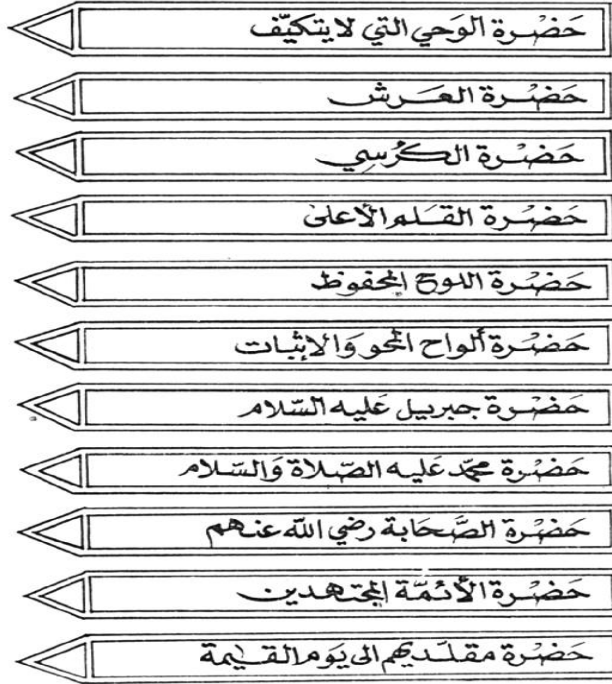 حَضْرة الوَحي التي لا يتكيّف
حَضْرة العَرش
حَضْرة الكُرسِي
حَضْرة القَلم الأعلى
حَضْرة اللوح المحفوظ
حَضْرة ألواح المحو وَالاثبات
حَضْرة جبريل عَليه السّلام
حَضْرة محمّد عَليه الصّلاة وَالسّلام
حَضْرة الصَّحَابة رضي الله عنهم
حَضْرة الأئمّة المجتهدين
حَضْرة مقلّديهم الى يَوم القيٰمة